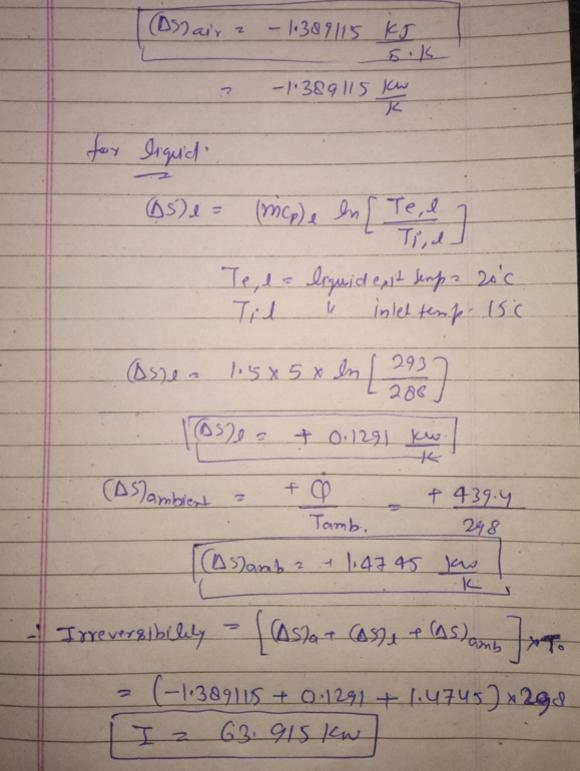 (ΔS)air = -1.389115 kJ/s.k
= -1.389115 kw/k
for liquid.
(ΔS)l = (ṁcp)l ln[Te,l/Ti,l]
Te,l = liquid exit temp = 20°C
Ti,l " inlet temp. 15°C
(ΔS)l = 1.5 x 5 x ln[293/288]
(ΔS)l = + 0.1291 kw/k
(ΔS)ambient = + Q̇/Tamb. = + 439.4/298
(ΔS)amb = + 1.4745 kw/k
∴ Irreversibility = [(ΔS)a + (ΔS)l + (ΔS)amb] x To
= (-1.389115 + 0.1291 + 1.4745) x 298
I = 63.915 kw